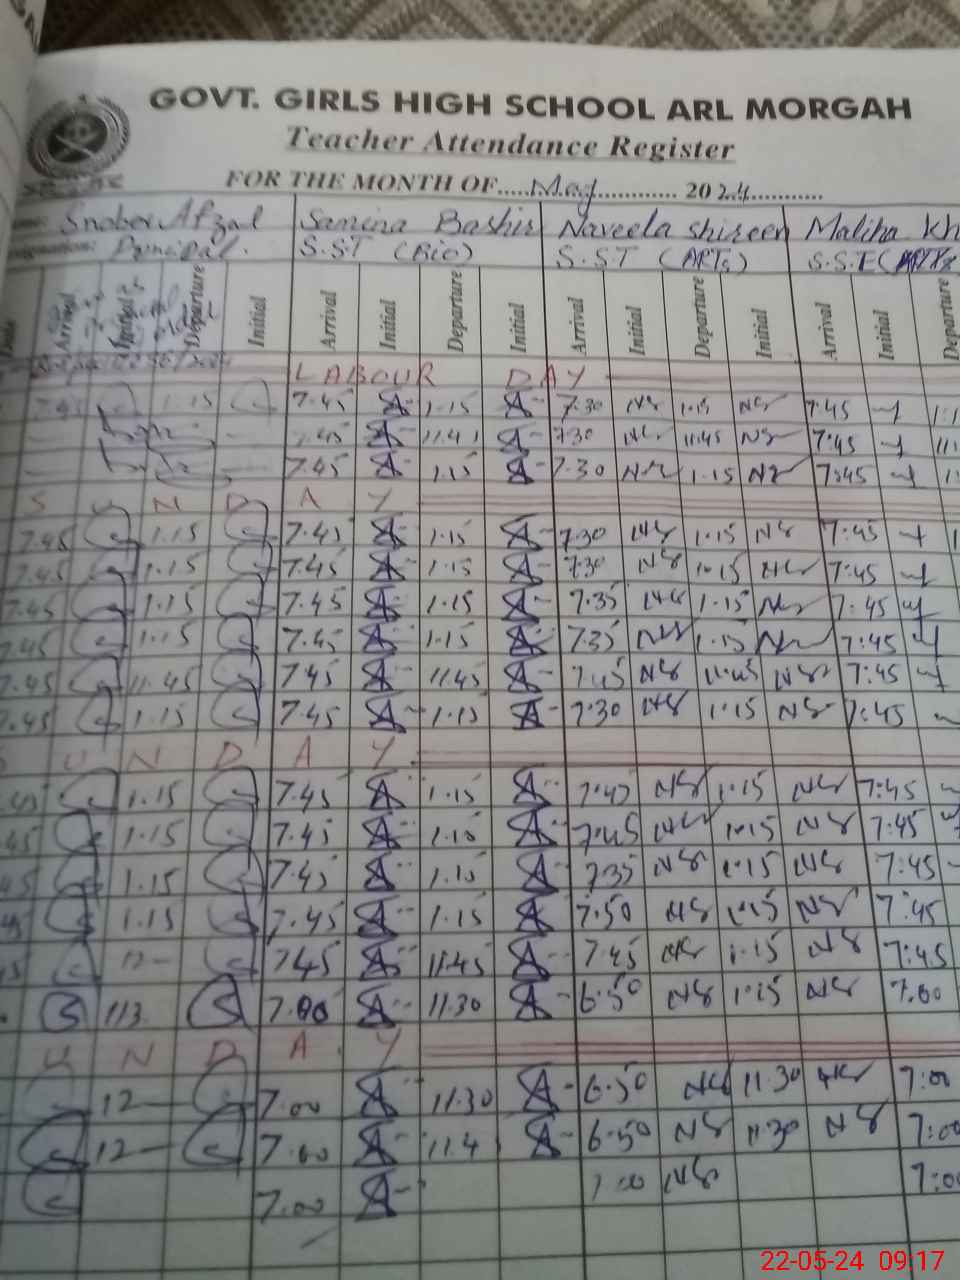 GOVT. GIRLS HIGH SCHOOL ARL MORGAH
Teacher Attendance Register
FOR THE MONTH OF.....May............ 2024............
Snober Afzal Samina Bashir Naveela shireen Maliha Kh
Principal. S.S.T (Bio) S.S.T (ARTs) S.S.E (ARTs
Arrival Initial Departure Initial Arrival Initial Departure Initial Arrival Initial Departure Initial Arrival Initial Departure
LABOUR DAY
7.45 1.15 7.45 A 1.15 A 7.30 NS 1.15 NS 7:45
7.45 A 11.45 A 7.30 NS 11.45 NS 7:45
7.45 A 1.15 A 7.30 NS 1.15 NS 7:45
S U N D A Y
7.45 1.15 7.45 A 1.15 A 7.30 NS 1.15 NS 7:45
7.45 1.15 7.45 A 1.15 A 7.30 NS 1.15 NS 7:45
7.45 1.15 7.45 A 1.15 A 7.35 NS 1.15 NS 7:45
7.45 1.15 7.45 A 1.15 A 7.35 NS 1.15 NS 7:45
7.45 11.45 7.45 A 11.45 A 7.45 NS 11.45 NS 7:45
7.45 1.15 7.45 A 1.15 A 7.30 NS 1.15 NS 7:45
S U N D A Y
.45 1.15 7.45 A 1.15 A 7:45 NS 1.15 NS 7:45
45 1.15 7.45 A 1.15 A 7:45 NS 1.15 NS 7:45
45 1.15 7.45 A 1.15 A 7.35 NS 1.15 NS 7:45
45 1.15 7.45 A 1.15 A 7.50 NS 1.15 NS 7:45
45 12- 7.45 A 11.45 A 7.45 NS 1.15 NS 7:45
113. 7.00 A 11.30 A 6.50 NS 1.15 NS 7.00
U N D A Y
12- 7.00 A 11.30 A 6.50 NS 11.30 NS 7:00
12- 7.00 A 11.4 A 6.50 NS 11.30 NS 7:00
7.00 A 7.00 NS 7:00
22-05-24 09:17